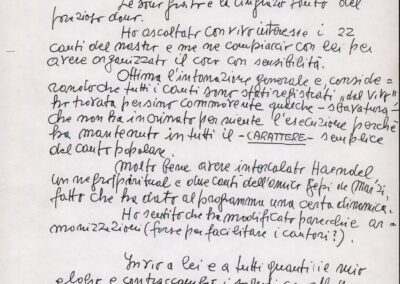 Le sono grato e la ringrazio tanto del
prezioso dono.
Ho ascoltato con vivo interesse i 22
canti del nastro e me ne compiaccio con lei per
avere organizzato il coro con sensibilità.
Ottima l'intonazione generale e, conside-
rando che tutti i canti sono stati registrati "dal vivo"
ho trovata persino commovente qualche - sbavatura -
che non ha incrinato per niente l'esecuzione perché
ha mantenuto in tutti il - CARATTERE - semplice
del canto popolare.
Molto bene avere intercalato Haendel
un negro spiritual e due canti dell'amico Bepi De Marzi,
fatto che ha dato al programma una certa dinamica.
Ho sentito che ha modificato parecchie ar-
monizzazioni (forse per facilitare i cantori?).
Invio a lei e a tutti quanti il mio
elogio e contraccambio i